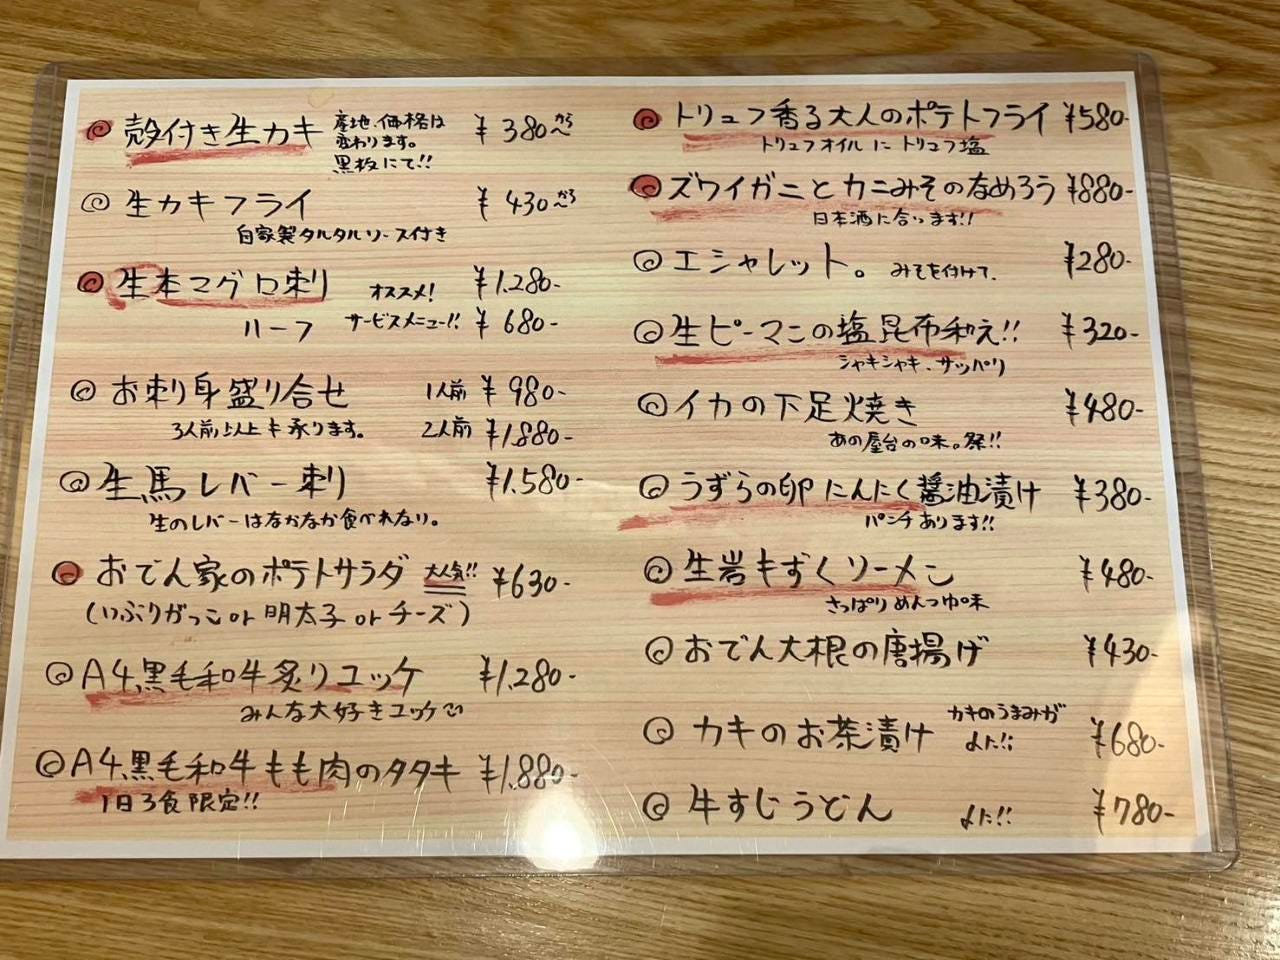 殻付き生カキ 産地、価格は ¥380〜から
変わります。
黒板にて!!
生カキフライ ¥430〜から
自家製タルタルソース付き
生本マグロ刺 オススメ! ¥1,280-
ハーフ サービスメニュー!! ¥680-
お刺身盛り合せ 1人前 ¥980-
3人前以上も承ります。 2人前 ¥1,880-
生馬レバー刺 ¥1,580-
生のレバーはなかなか食べれない。
おでん家のポテトサラダ 大人気!! ¥630-
(いぶりがっこ or 明太子 or チーズ)
A4黒毛和牛炙りユッケ ¥1,280-
みんな大好きユッケ
A4黒毛和牛もも肉のタタキ ¥1,880-
1日3食限定!!
トリュフ香る大人のポテトフライ ¥580-
トリュフオイル に トリュフ塩
ズワイガニとカニみそのなめろう ¥880-
日本酒に合います!!
エシャレット。 みそを付けて、 ¥280-
生ピーマンの塩昆布和え!! ¥320-
シャキシャキ、サッパリ
イカの下足焼き ¥480-
あの屋台の味。祭!!
うずらの卵 にんにく醤油漬け ¥380-
パンチあります!!
生岩もずくソーメン ¥480-
さっぱりめんつゆ味
おでん大根の唐揚げ ¥430-
カキのお茶漬け カキのうまみが ¥680-
〆だ!!
牛すじうどん 〆だ!! ¥780-